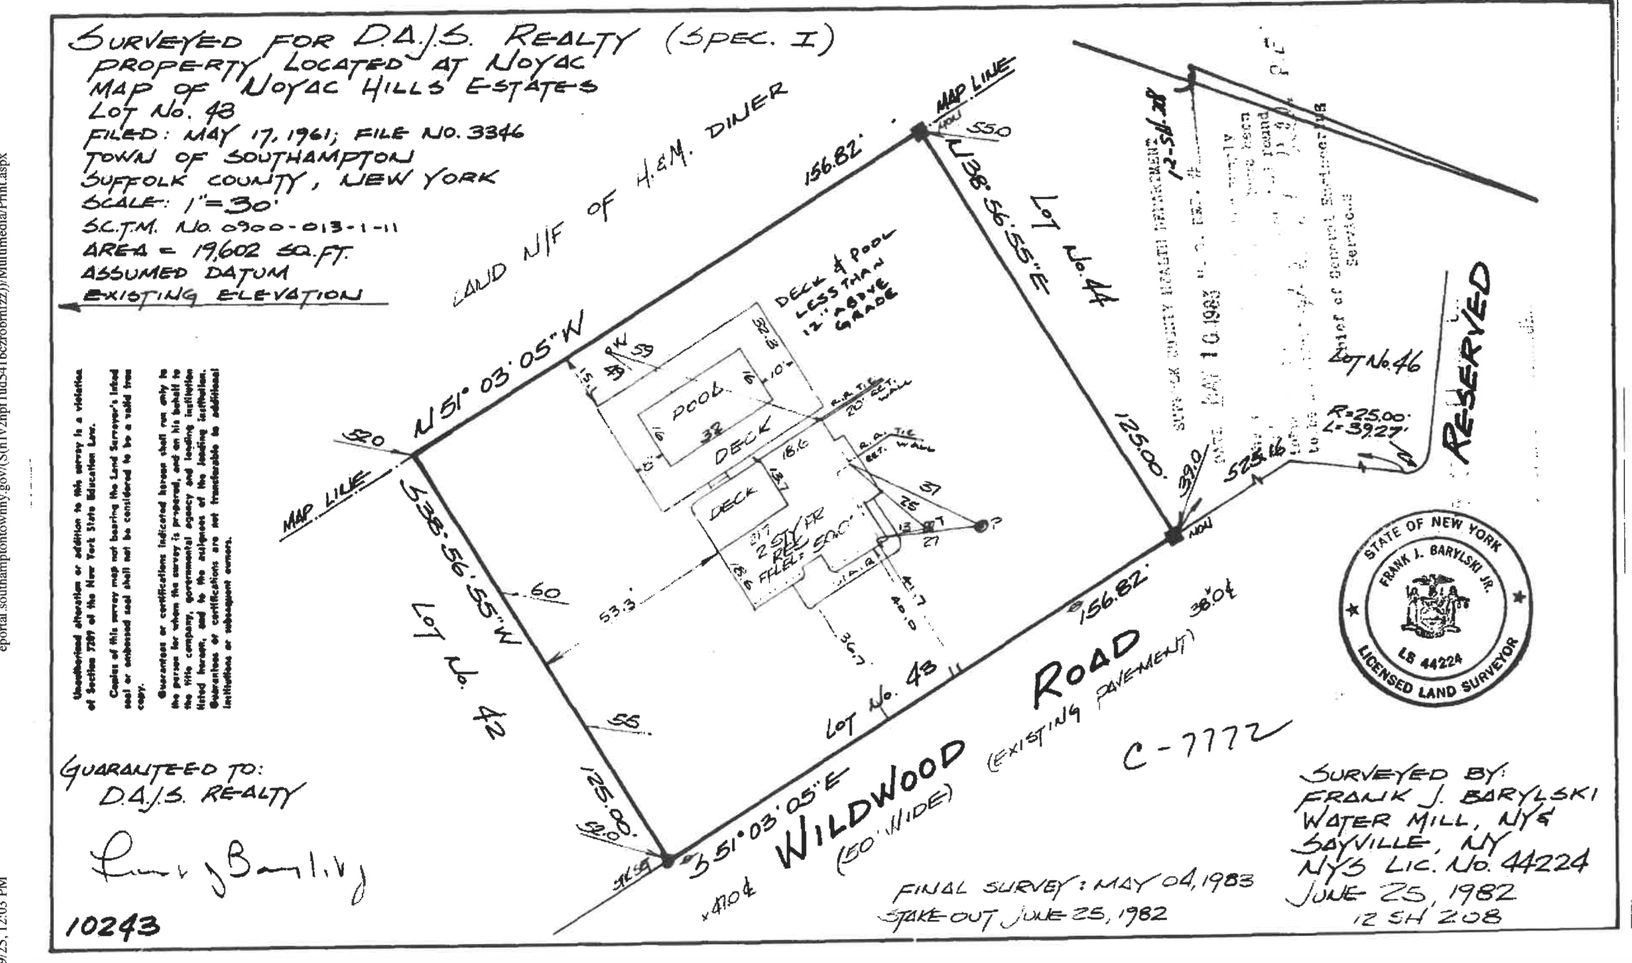 SURVEYED FOR D.A.J.S. REALTY (SPEC. I)
PROPERTY LOCATED AT NOYAC
MAP OF NOYAC HILLS ESTATES
LOT No. 43
FILED: MAY 17, 1961; FILE NO. 3346
TOWN OF SOUTHAMPTON
SUFFOLK COUNTY, NEW YORK
SCALE: 1"=30'
S.C.T.M. No. 0900-013-1-11
AREA = 19,602 SQ.FT.
ASSUMED DATUM
EXISTING ELEVATION
LAND N/F OF H.&M. DINER
MAP LINE
MON
55.0
156.82'
N 51° 03' 05" W
N38° 56' 55" E
LOT No. 44
125.00'
DECK & POOL
LESS THAN
12" ABOVE
GRADE
59
15.1
32.8
POOL
16
10'
16
32
DECK
R.R. TIE
20' RET.
WALL
18.6
R.R. TIE
RET. WALL
DECK
13.7
21.7
2 STY FR
RES
FFLEL= 50.0
18.6
37
25
13
27
GAR
41.7
40.0
36.7
53.3'
52.0
MAP LINE
S38° 56' 55" W
60
LOT No. 42
55
125.00'
52.0
LOT No. 43
S 51° 03' 05" E
156.82'
38.0 ℄
WILDWOOD ROAD
(50' WIDE)
(EXISTING PAVEMENT)
x47.0 ℄
39.0
MON
525.16
LOT No. 46
R=25.00'
L=39.27'
RESERVED
SUFFOLK COUNTY HEALTH DEPARTMENT
MAY 10 1983
Chief of General Engineering
Services
STATE OF NEW YORK
FRANK J. BARYLSKI JR.
LS 44224
LICENSED LAND SURVEYOR
C-7772
Unauthorized alteration or addition to this survey is a violation
of Section 7209 of the New York State Education Law.
Copies of this survey map not bearing the Land Surveyor's inked
seal or embossed seal shall not be considered to be a valid true
copy.
Guarantees or certifications indicated hereon shall run only to
the person for whom the survey is prepared, and on his behalf to
the title company, governmental agency and lending institution
listed hereon, and to the assignees of the lending institution.
Guarantees or certifications are not transferable to additional
institutions or subsequent owners.
GUARANTEED TO:
D.A.J.S. REALTY
10243
FINAL SURVEY: MAY 04, 1983
STAKE OUT JUNE 25, 1982
SURVEYED BY:
FRANK J. BARYLSKI
WATER MILL, NY &
SAYVILLE, NY
NYS LIC. NO. 44224
JUNE 25, 1982
12 SH 208